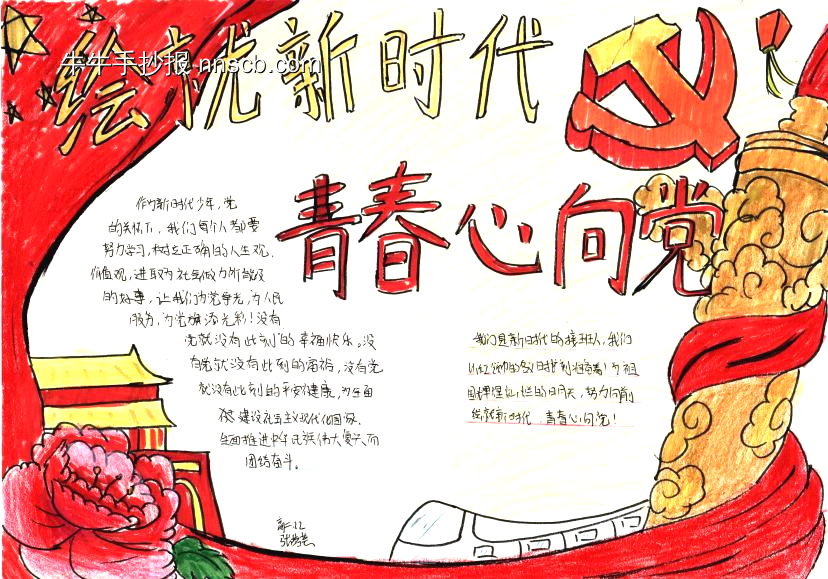 绘就新时代
牛牛手抄报 nnscb.com
青春心向党
作为新时代少年,党
的关怀下,我们每个人都要
努力学习,树立正确的人生观、
价值观,进取为社会做力所能及
的好事,让我们为党争光,为人民
服务,为党旗添光彩!没有
党就没有此刻的幸福快乐。没
有党就没有此刻的富裕,没有党
就没有此刻的平安健康,为全面
建设社会主义现代化国家、
全面推进中华民族伟大复兴而
团结奋斗。
我们是新时代的接班人,我们
以红领巾的名义
国家
的明天,努力向前
绘就新时代,青春心向党!
高一.12